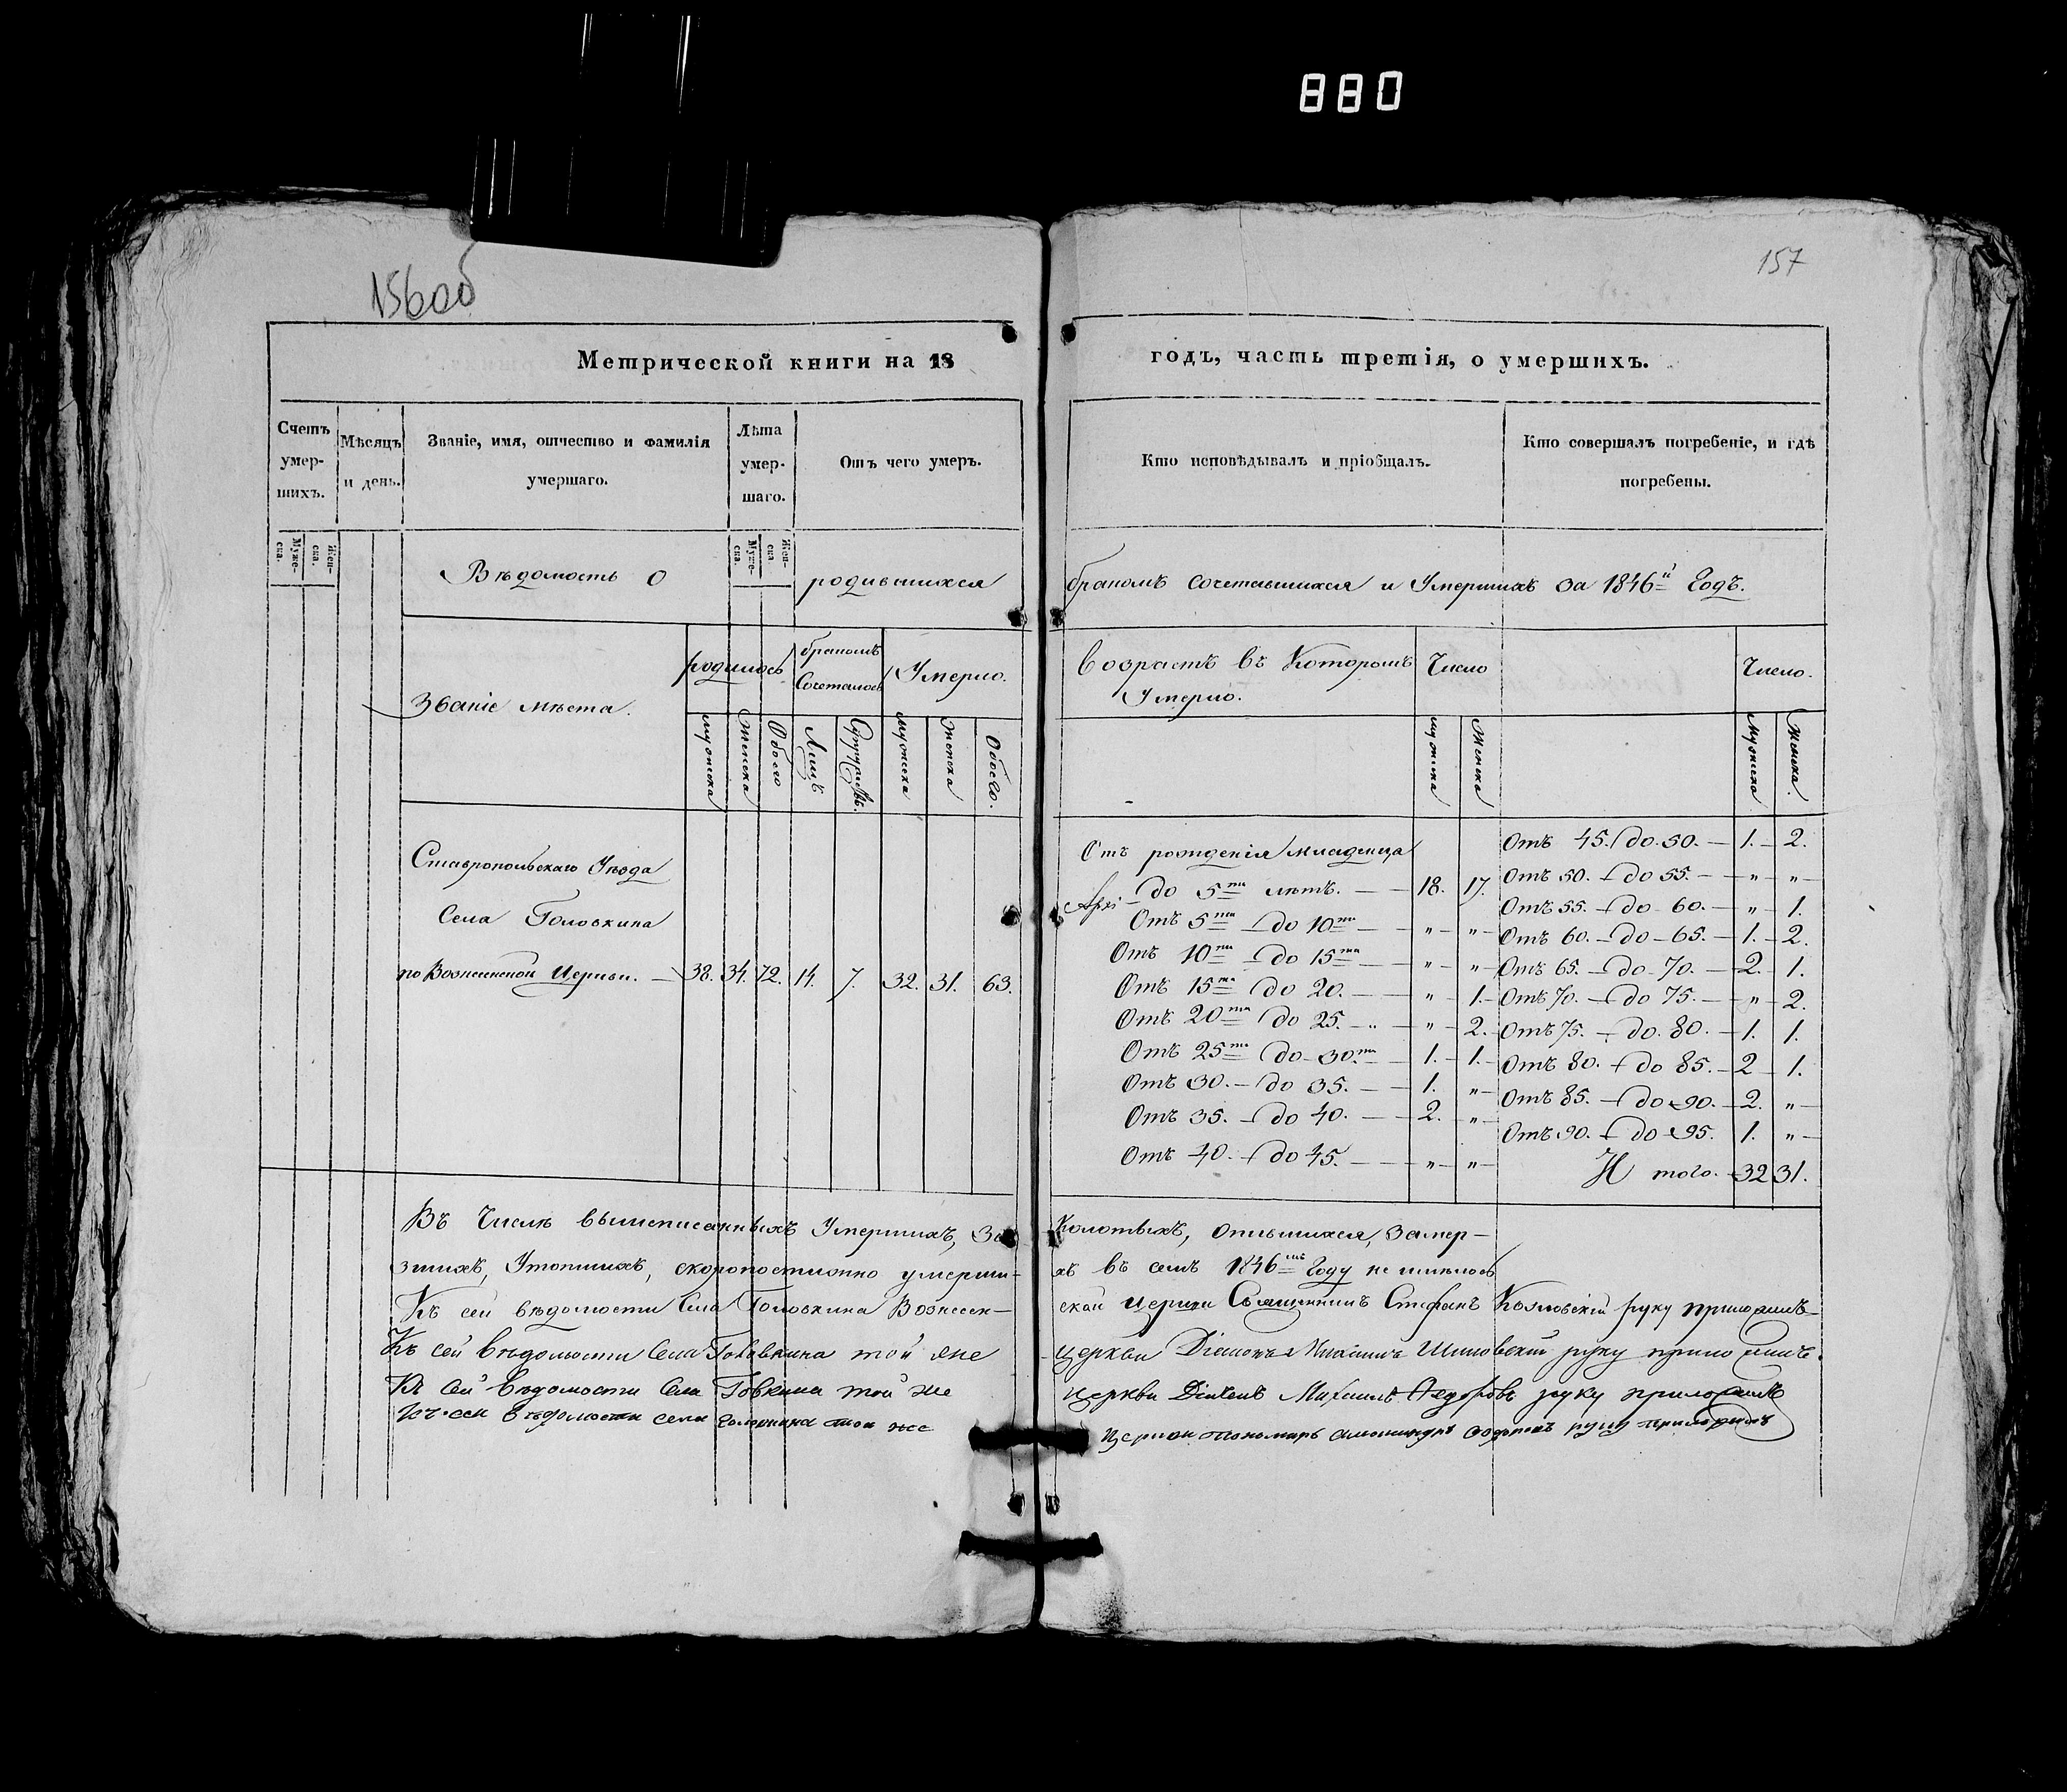 880
156об
157
Метрической книги на 18
годъ, часть третія, о умершихъ.
Счетъ умер-шихъ.
Мѣсяцъ и день.
Званіе, имя, отчество и фамилія умершаго.
Лѣта умер-шаго.
Отъ чего умеръ.
Кто исповѣдывалъ и пріобщалъ.
Кто совершалъ погребеніе, и гдѣ погребены.
Муже-ска.
Жен-ска.
Муже-ска.
Жен-ска
Вѣдомость о родившихся
бракомъ сочетавшихся и Умершихъ за 1846й Годъ.
Званіе мѣста.
родилось
бракомъ Сочеталось
Умерло.
мужеска
Женска
Обоего
Лицъ
Супружествъ.
мужеска
женска
Обоего.
возрастъ въ Которомъ Умерло.
Число
Число.
мужеска
Женска
Мужеска
Женска.
Ставропольскаго Уѣзда
Села Головкина
по Вознесенской Церкви. — 38. 34. 72. 14. 7. 32. 31. 63.
Отъ рожденія младенца
до 5ти лѣтъ. — 18. 17.
Отъ 5ти до 10ти — " — "
Отъ 10ти до 15ти — " — "
Отъ 15ти до 20. — " — 1.
Отъ 20ти до 25. — " — 2.
Отъ 25ти до 30.ти 1. — 1.
Отъ 30. — до 35. — 1. "
Отъ 35. — до 40. — 2. "
Отъ 40. — до 45. — " — "
Отъ 45. до 50. — 1. — 2.
Отъ 50. — до 55. — " — "
Отъ 55. — до 60. — " — 1.
Отъ 60. — до 65. — 1. — 2.
Отъ 65. — до 70. — 2. 1.
Отъ 70. — до 75. — " — 2.
Отъ 75. — до 80. — 1. 1.
Отъ 80. — до 85. — 2 — 1.
Отъ 85. — до 90. — 2. "
Отъ 90. — до 95. 1. "
И того. 32 31.
Въ Числѣ вышеписанныхъ Умершихъ, за
Колотыхъ, опившихся, замер-
зшихъ, Утопшихъ, скоропостижно умерши-
хъ въ семъ 1846мъ Году не имѣлось
Къ сей вѣдомости Села Головкина Вознесен-
ской церкви Священникъ Стефанъ Козловскій руку приложилъ
Къ сей вѣдомости Села Головкина той же
церкви Діаконъ Михаилъ руку приложилъ.
Къ Сей вѣдомости Села Говкина той же
церкви Михаилъ Федоровъ руку приложилъ
Къ сей вѣдомости села головкина той же
Церкви пономарь руку приложилъ